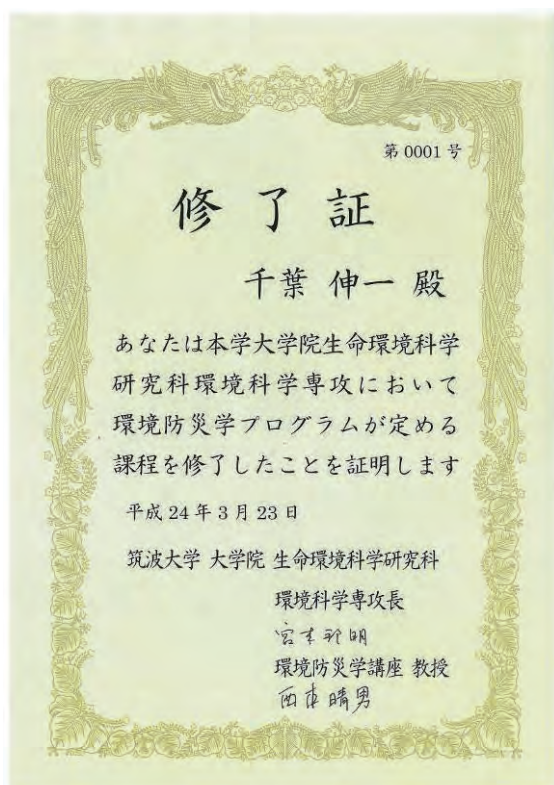 第0001号
修了証
千葉 伸一 殿
あなたは本学大学院生命環境科学
研究科環境科学専攻において
環境防災学プログラムが定める
課程を修了したことを証明します
平成24年3月23日
筑波大学 大学院 生命環境科学研究科
環境科学専攻長
宮本邦明
環境防災学講座 教授
西本晴男